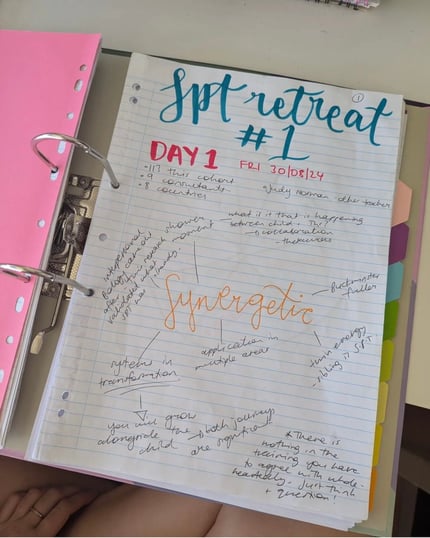 1
Spt retreat
#1
DAY 1 FRI 30/08/24
-113 this cohort
-9 consultants
-8 countries
Judy Norman other teacher
shower
moment
what is it that is happening
between child
collaboration
interpersonal
Synergetic
Buckminster
Fuller
application in
multiple areas
twin energy
sibling is S.P.T.
system in
transformation
you will grow
alongside the
child
both journeys
are significant
*There is
nothing in the
training you have
to agree with whole
heartedly. Just think
+ question!